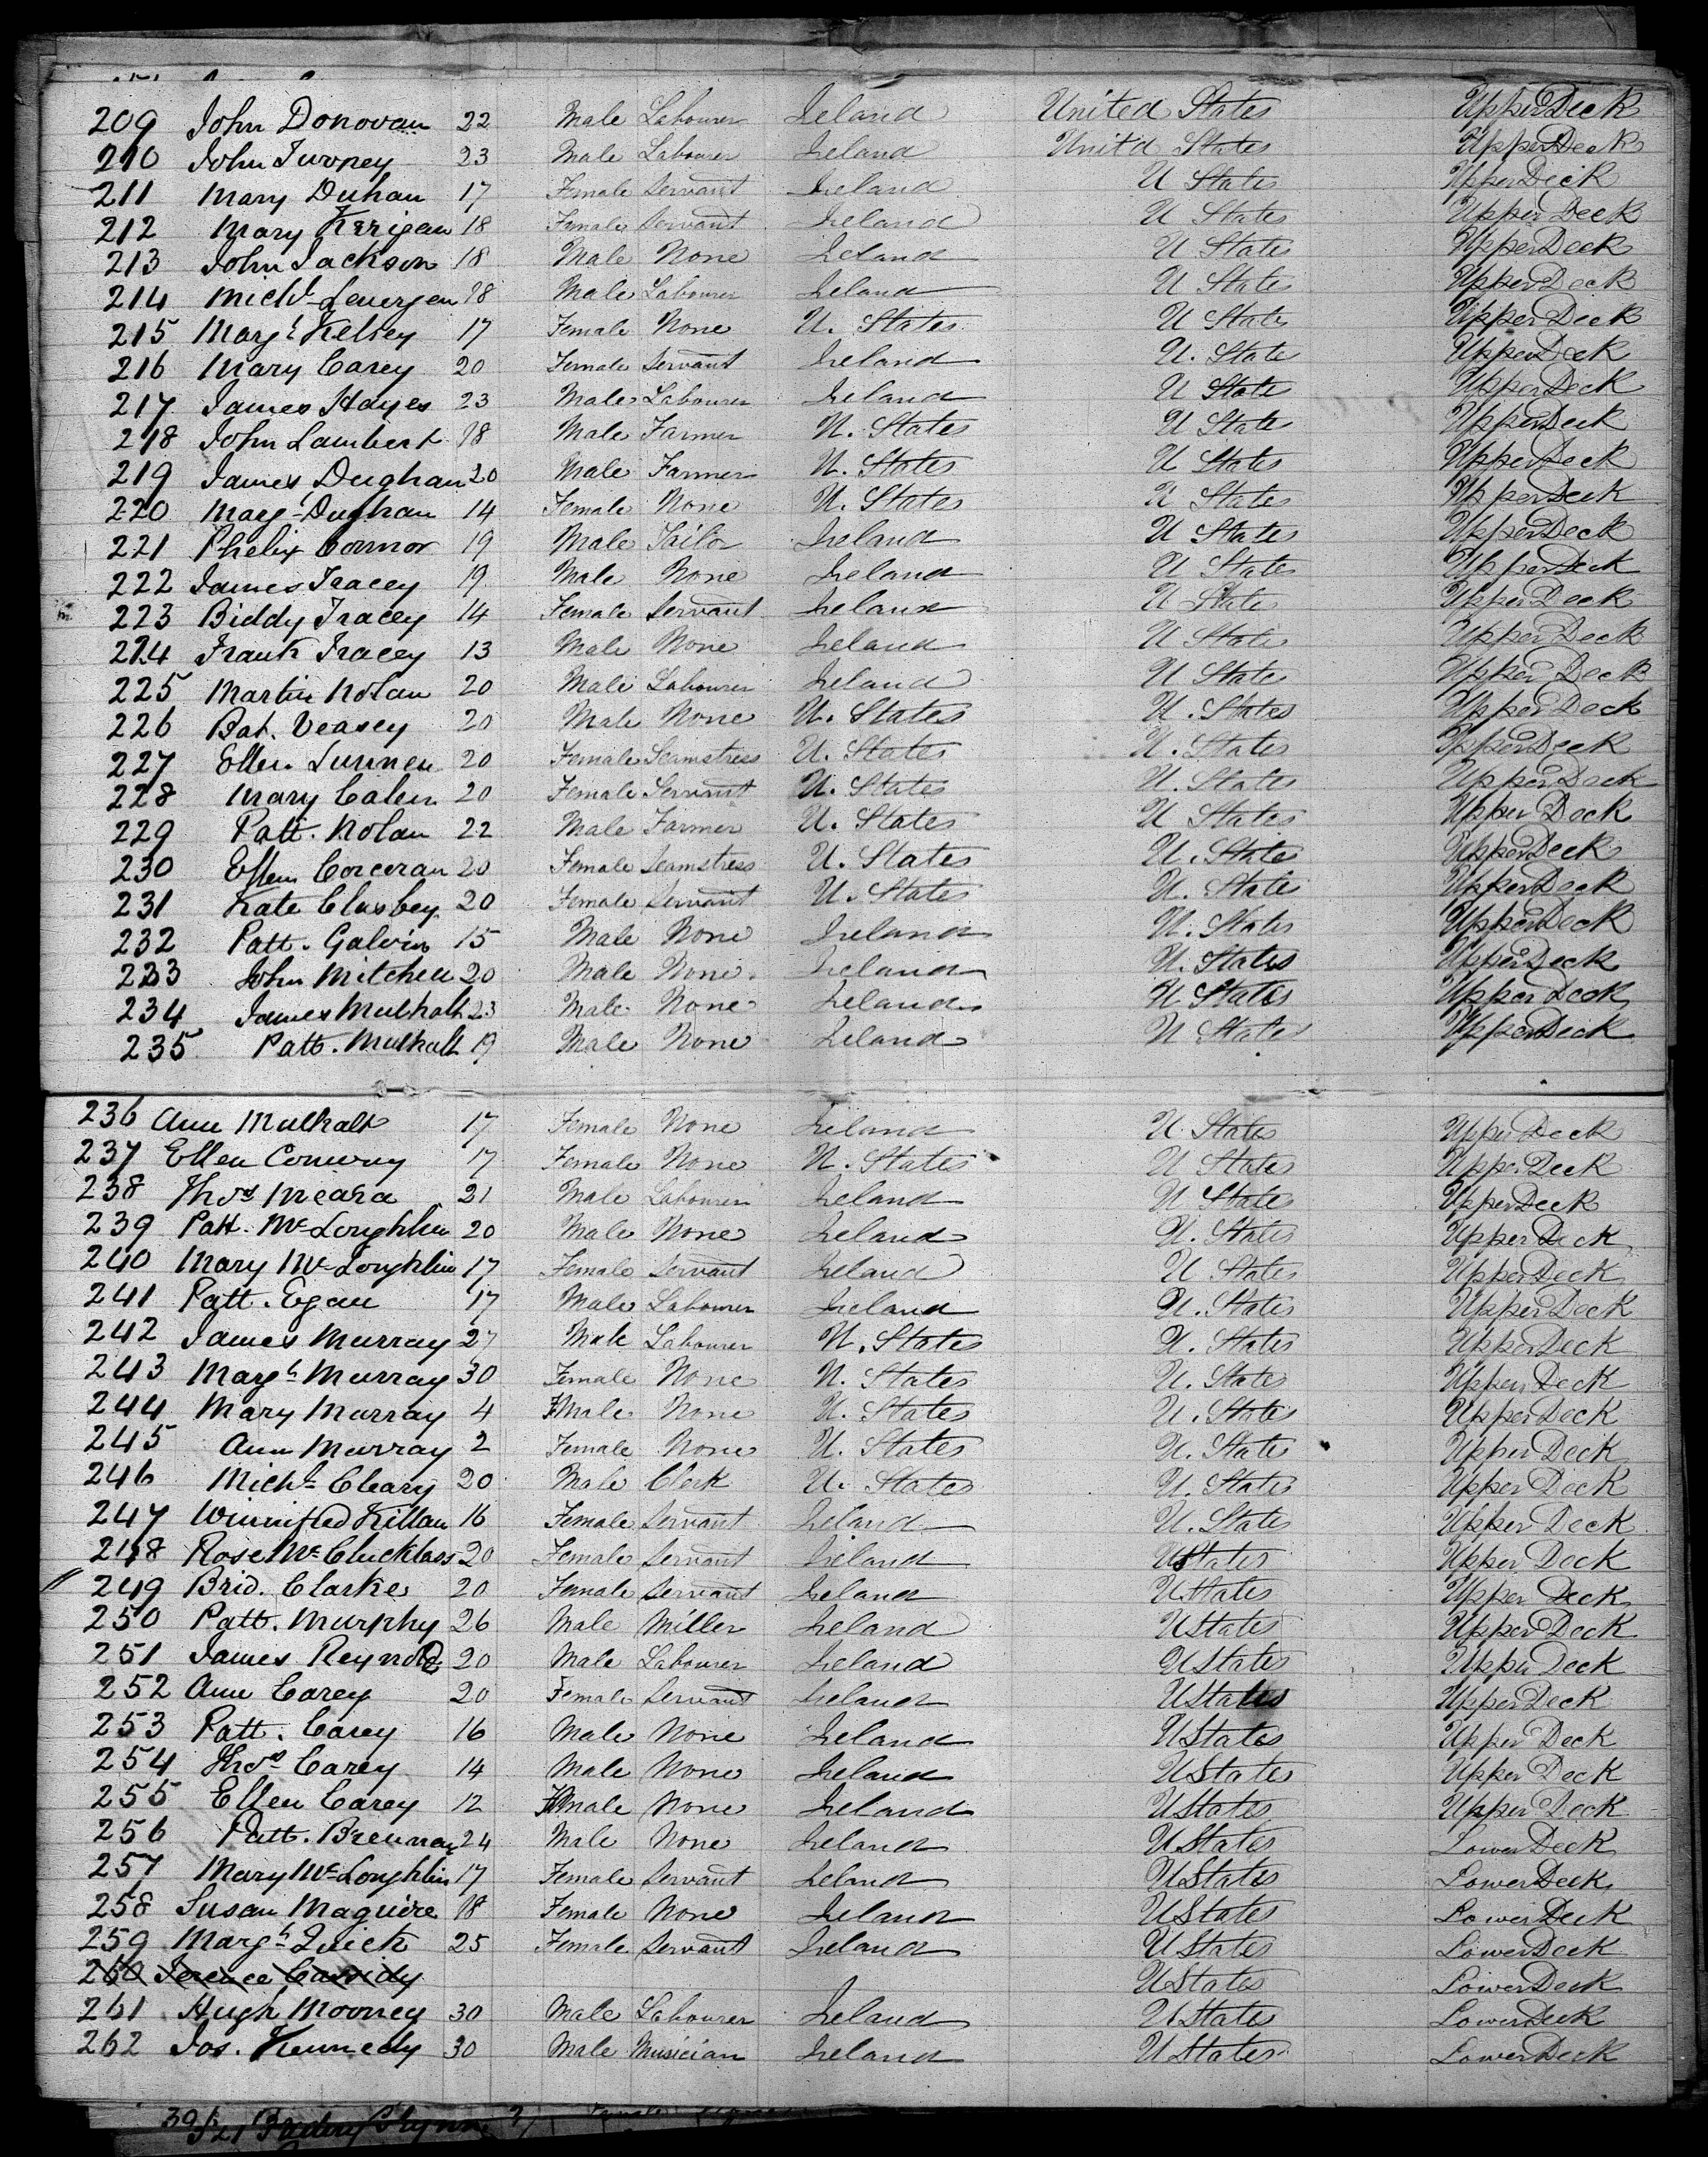 209 John Donovan 22 Male Labourer Ireland United States Upper Deck
210 John Twoney 23 Male Labourer Ireland Unitd States Upper Deck
211 Mary Duhan 17 Female Servant Ireland U States Upper Deck
212 Mary Kerrigan 18 Female Servant Ireland U States Upper Deck
213 John Jackson 18 Male None Ireland U States Upper Deck
214 Michl 18 Male Labourer Ireland U State Upper Deck
215 Margt Kelsey 17 Female None U. States U State Upper Deck
216 Mary Carey 20 Female Servant Ireland U. State Upper Deck
217 James Hayes 23 Male Labourer Ireland U State Upper Deck
218 John Lambert 18 Male Farmer U. States U State Upper Deck
219 James Dughan 20 Male Farmer U. States U States Upper Deck
220 Marg Dughan 14 Female None U. States U States Upper Deck
221 Phelix Connor 19 Male Tailor Ireland U States Upper Deck
222 James Tracey 19 Male None Ireland U States Upper Deck
223 Biddy Tracey 14 Female Servant Ireland U State Upper Deck
224 Frank Tracey 13 Male None Ireland U State Upper Deck
225 Martin Nolan 20 Male Labourer Ireland U State Upper Deck
226 Pat. Veasey 20 Male None U. States U. States Upper Deck
227 Ellen Lunnen 20 Female Seamstress U. States U. States Upper Deck
228 Mary Calen 20 Female Servant U. States U. States Upper Deck
229 Patt. Nolan 22 Male Farmer U. States U States Upper Deck
230 Ellen Corcoran 20 Female Seamstress U. States U. State Upper Deck
231 Kate Clasbey 20 Female Servant U. States U. State Upper Deck
232 Patt. Galvin 15 Male None Ireland U. States Upper Deck
233 John Mitchell 20 Male None. Ireland U. States Upper Deck
234 James Mulhalt 23 Male None Ireland U States Upper Deck
235 Patt. Mulhalt 19 Male None Ireland U States Upper Deck
236 Ann Mulhalt 17 Female None Ireland U States Upper Deck
237 Ellen Conway 17 Female None U. States U States Upper Deck
238 Thos Meara 21 Male Labourer Ireland U State Upper Deck
239 Patt. McLoughlin 20 Male None Ireland U. States Upper Deck
240 Mary McLoughlin 17 Female Servant Ireland U States Upper Deck
241 Patt. Egan 17 Male Labourer Ireland U. States Upper Deck
242 James Murray 27 Male Labourer U. States U. States Upper Deck
243 Margt Murray 30 Female None U. States U. State Upper Deck
244 Mary Murray 4 Fmale None U. States U. States Upper Deck
245 Ann Murray 2 Female None U. States U. State Upper Deck
246 Michl Cleary 20 Male Clerk U. States U. States Upper Deck
247 Winnifred Killan 16 Female Servant Ireland U. State Upper Deck
248 Rose 20 Female Servant Ireland U States Upper Deck
249 Brid. Clarke 20 Female Servant Ireland U States Upper Deck
250 Patt. Murphy 26 Male Miller Ireland U States Upper Deck
251 James Reynold 20 Male Labourer Ireland U States Upper Deck
252 Ann Carey 20 Female Servant Ireland U States Upper Deck
253 Patt. Carey 16 Male None Ireland U States Upper Deck
254 Thos Carey 14 Male None Ireland U States Upper Deck
255 Ellen Carey 12 Female None Ireland U States Upper Deck
256 Patt. Brennan 24 Male None Ireland U States Lower Deck
257 Mary McLoughlin 17 Female Servant Ireland U States Lower Deck
258 Susan Maguire 18 Female None Ireland U States Lower Deck
259 Margt Quick 25 Female Servant Ireland U States Lower Deck
260 Terence Cassidy U States Lower Deck
261 Hugh Mooney 30 Male Labourer Ireland U States Lower Deck
262 Jos. Kennedy 30 Male Musician Ireland U States Lower Deck